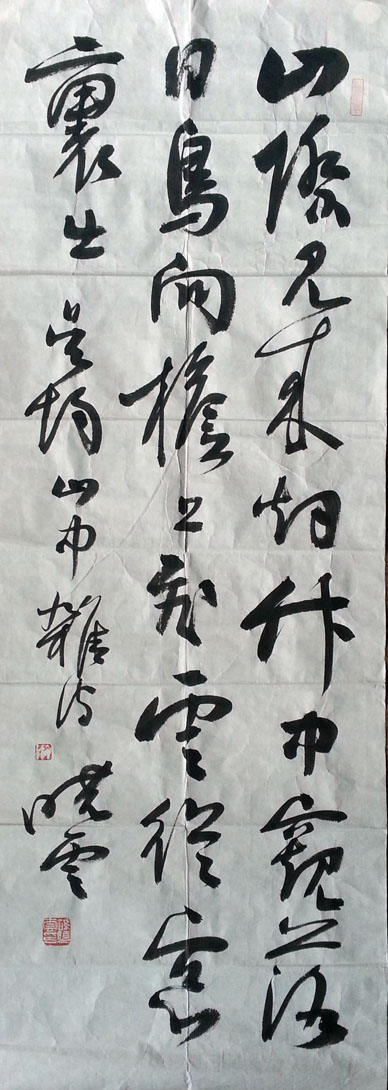 山際見来烟竹中窺落
日鳥向檐上飛雲從窗
裏出 吳均山中雜詩 曉雲